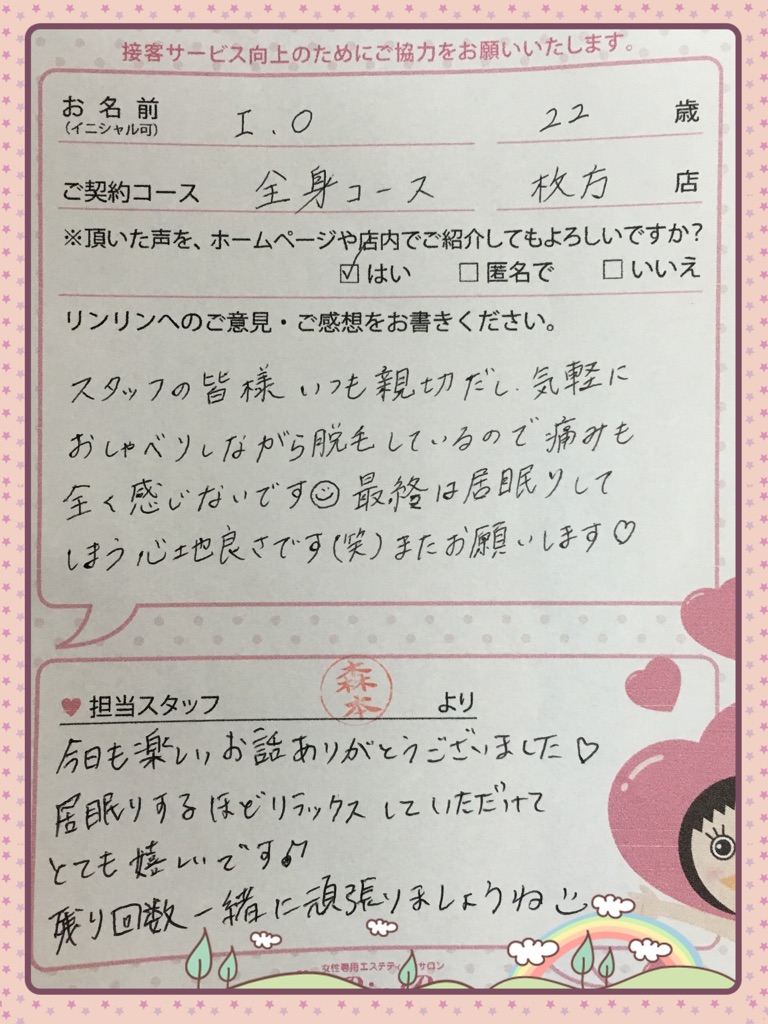 接客サービス向上のためにご協力をお願いいたします。
お名前 I.O 22 歳
(イニシャル可)
ご契約コース 全身コース 枚方 店
※頂いた声を、ホームページや店内でご紹介してもよろしいですか?
☑はい □匿名で □いいえ
リンリンへのご意見・ご感想をお書きください。
スタッフの皆様いつも親切だし、気軽に
おしゃべりしながら脱毛しているので痛みも
全く感じないです☺最終は居眠りして
しまう心地良さです(笑)またお願いします♡
♥担当スタッフ 森本 より
今日も楽しいお話ありがとうございました♡
居眠りするほどリラックスしていただけて
とても嬉しいです♪
残り回数一緒に頑張りましょうね☺
女性専用エステティックサロン